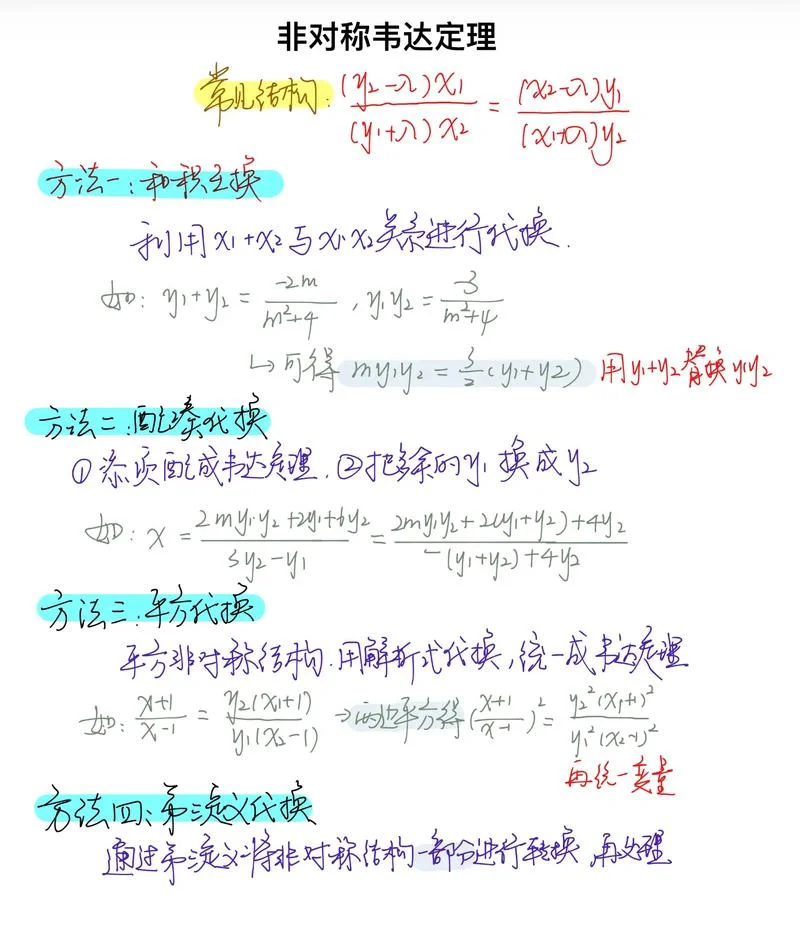 非对称韦达定理
常见结构: (y2-λ)x1/(y1+λ)x2 = (x2-λ)y1/(x1+λ)y2
方法一:和积互换
利用x1+x2与x1x2关系进行代换.
如: y1+y2 = -2m/(m²+4), y1y2 = -3/(m²+4)
↳可得 my1y2 = 3/2(y1+y2) 用y1+y2替换y1y2
方法二:配凑代换
①添项配成韦达定理.②把多余的y1换成y2
如: x = (2my1y2+2y1+6y2)/(3y2-y1) = (2my1y2+2(y1+y2)+4y2)/(-(y1+y2)+4y2)
方法三:平方代换
平方非对称结构.用解析式代换,统一成韦达定理
如: (x+1)/(x-1) = y2(x1+1)/y1(x2-1) →两边平方得((x+1)/(x-1))² = y2²(x1+1)²/y1²(x2-1)²
再统一变量
方法四:第三定义代换
通过第三定义将非对称结构一部分进行转换,再处理